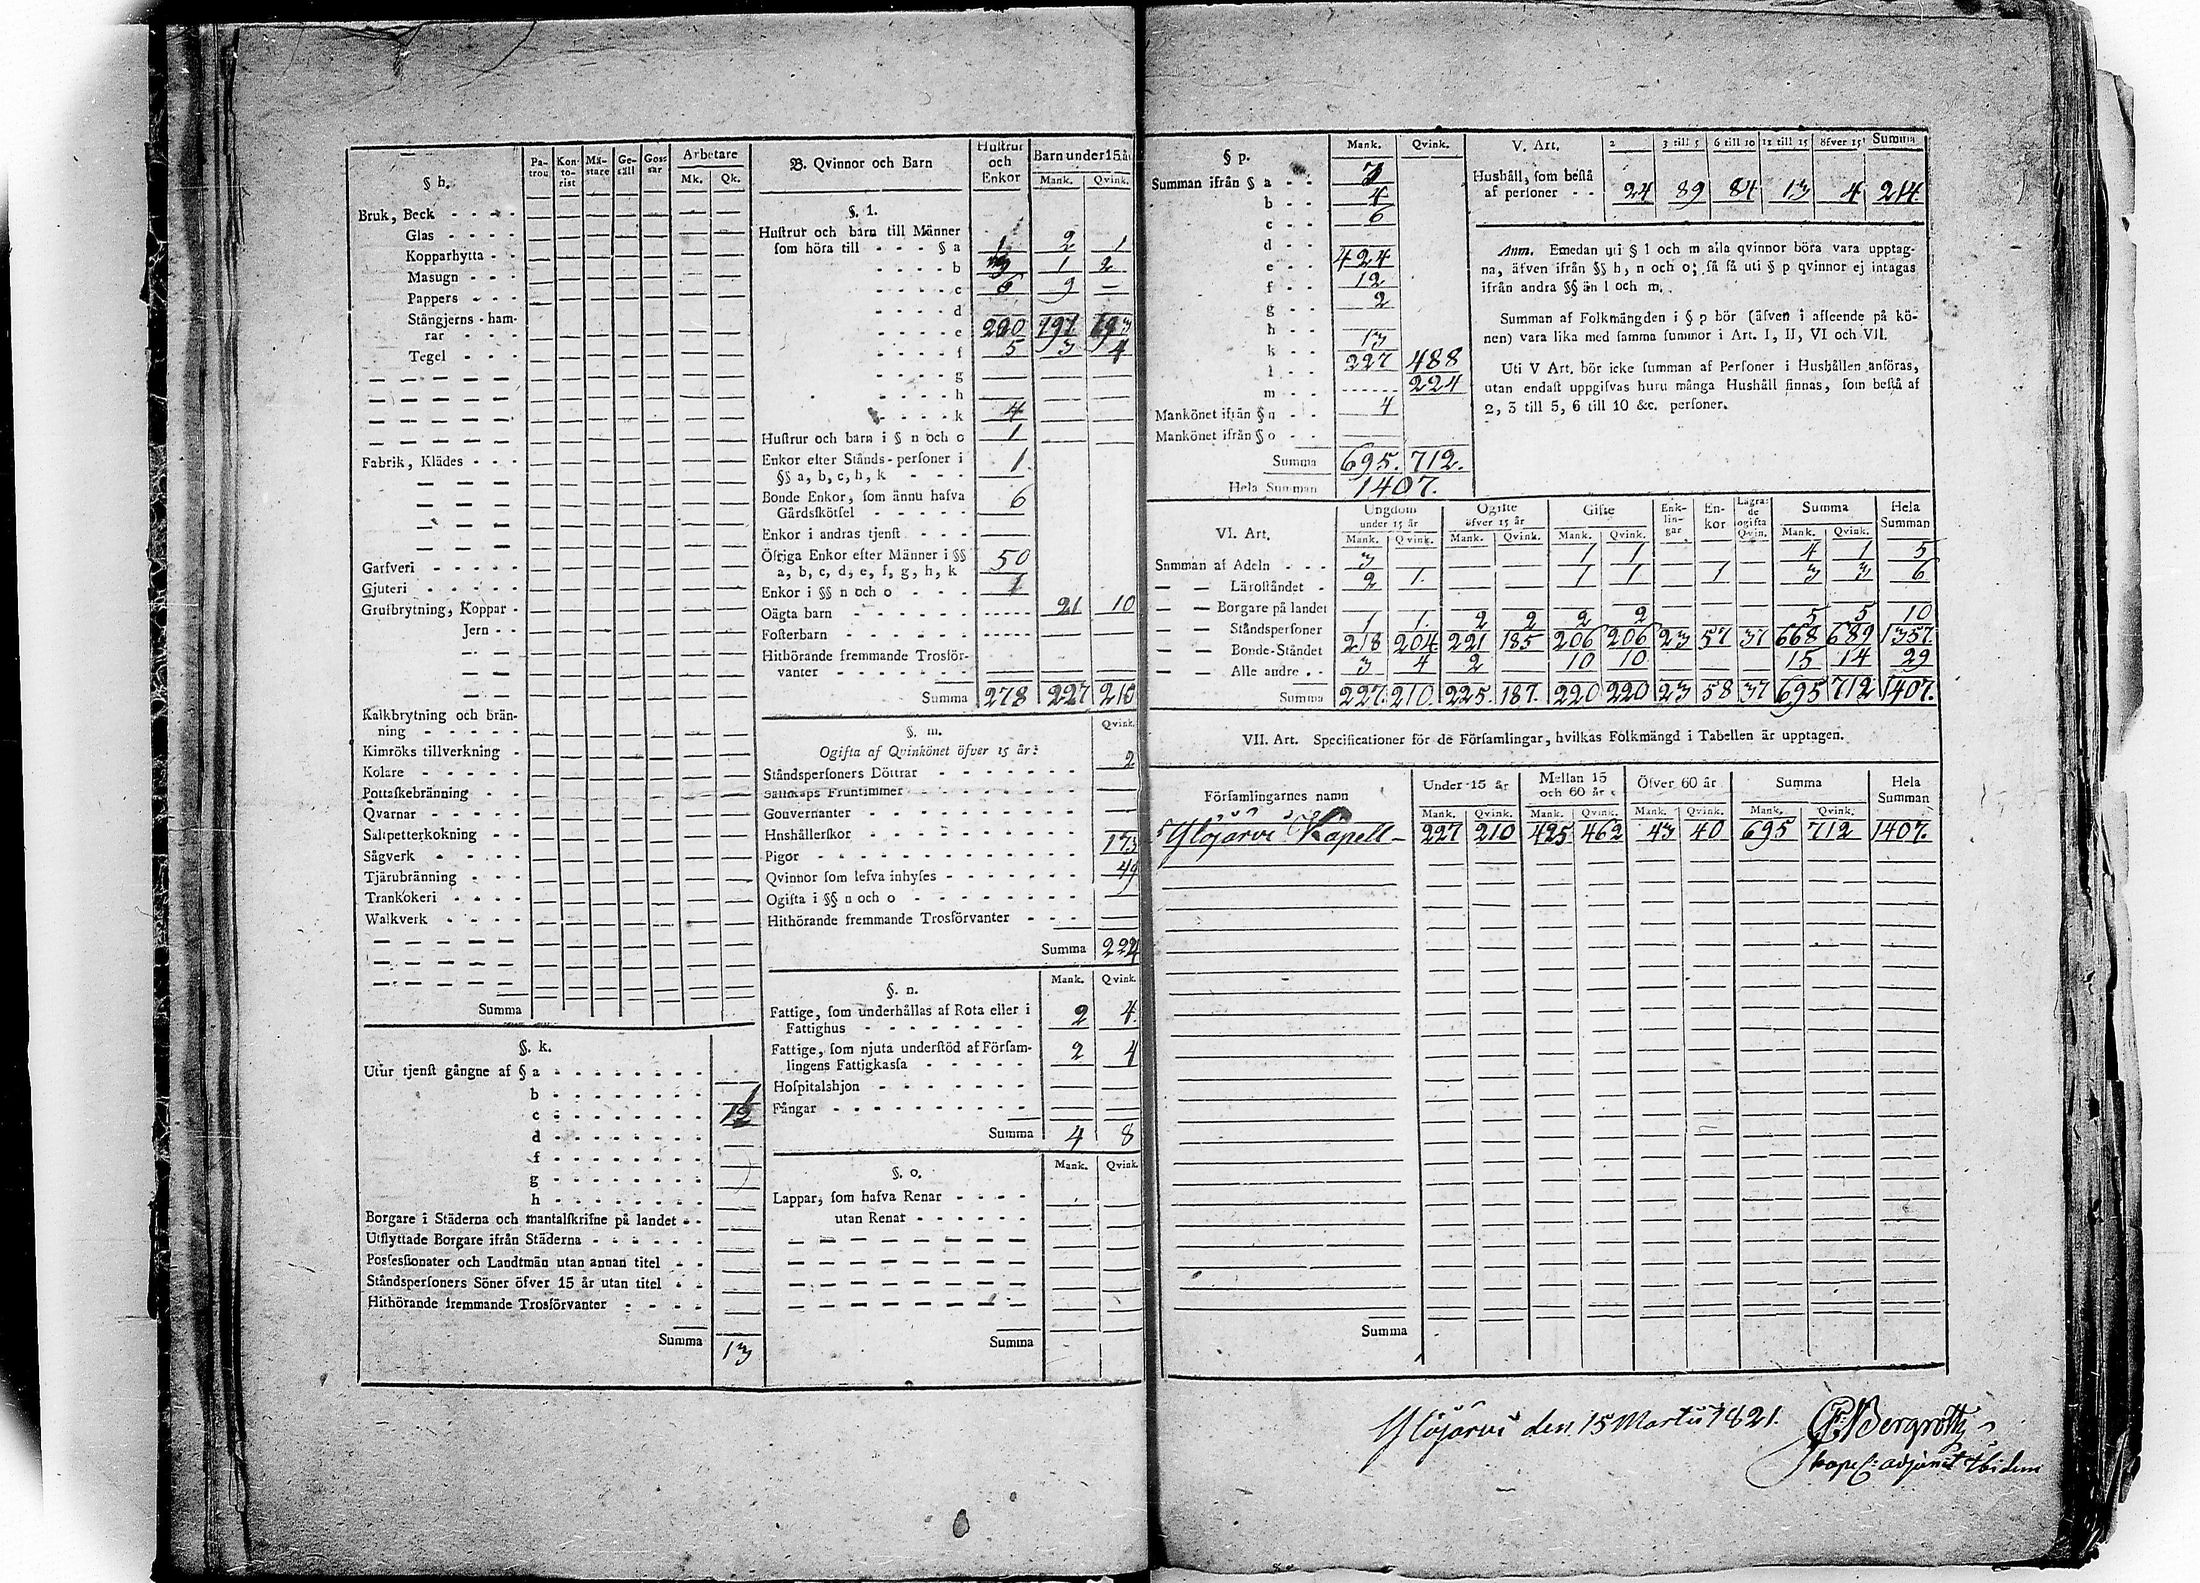 § h. Pa-trou Kon-to-rist Mä-stare Ge-säll Gos-sar Arbetare Mk. Qk.
Bruk, Beck
Glas
Kopparhytta
Masugn
Pappers
Stångjerns-ham-
rar
Tegel
Fabrik, Klädes
Garfveri
Gjuteri
Grufbrytning, Koppar
Jern
Kalkbrytning och brän-
ning
Kimröks tillverkning
Kolare
Pottaskebränning
Qvarnar
Saltpetterkokning
Sågverk
Tjärubränning
Trankokeri
Walkverk
Summa
§. k.
Utur tjenst gångne af § a
b
c 1
d 12
f
g
h
Borgare i Städerna och mantalskrifne på landet
Utflyttade Borgare ifrån Städerna
Possessionater och Landtmän utan annan titel
Ståndspersoners Söner öfver 15 år utan titel
Hithörande fremmande Trosförvanter
Summa 13
B. Qvinnor och Barn Hustrur och Enkor Barn under 15 år Mank. Qvink.
§. 1.
Hustrur och barn till Männer
som höra till § a 1 2 1
b 1 2
c 6 9 —
d
e 200 191 193
f 5 3 4
g
h
k 4
Hustrur och barn i § n och o 1
Enkor efter Stånds-personer i
§§ a, b, c, h, k 1
Bonde Enkor, som ännu hafva
Gårdsskötsel 6
Enkor i andras tjenst
Öfriga Enkor efter Männer i §§
a, b, c, d, e, f, g, h, k 50
Enkor i §§ n och o 1
Oägta barn 21 10
Fosterbarn
Hithörande fremmande Trosför-
vanter
Summa 278 227 210
§. m. Qvink.
Ogifta af Qvinkönet öfver 15 år:
Ståndspersoners Döttrar 2
Sällskaps Fruntimmer
Gouvernanter
Hushållerskor
Pigor 173
Qvinnor som lefva inhyses 49
Ogifta i §§ n och o
Hithörande fremmande Trosförvanter
Summa 224
§. n. Mank. Qvink.
Fattige, som underhållas af Rota eller i
Fattighus 2 4
Fattige, som njuta understöd af Försam-
lingens Fattigkassa 2 4
Hospitalshjon
Fångar
Summa 4 8
§. o. Mank. Qvink.
Lappar, som hafva Renar
utan Renar
Summa
§ p. Mank. Qvink.
Summan ifrån § a 3
b 4
c 6
d
e 424
f 12
g 2
h
k 13
l 227 488
m 224
Mankönet ifrån § n 4
Mankönet ifrån § o
Summa 695. 712.
Hela Summan 1407.
V. Art. 2 3 till 5 6 till 10 11 till 15 öfver 15 Summa
Hushåll, som bestå
af personer 24 89 84 13 4 214.
Anm. Emedan uti § l och m alla qvinnor böra vara upptag-
na, äfven ifrån §§ h, n och o; så få uti § p qvinnor ej intagas
ifrån andra §§ än l och m.
Summan af Folkmängden i § p bör (äfven i afseende på kö-
nen) vara lika med samma summor i Art. I, II, VI och VII.
Uti V Art. bör icke summan af Personer i Hushållen anföras,
utan endast uppgifvas huru många Hushåll finnas, som bestå af
2, 3 till 5, 6 till 10 &c. personer.
VI. Art. Ungdom under 15 år Ogifte öfver 15 år Gifte Enk-lin-gar En-kor Lägra-de ogifta Qvin. Summa Hela Summan
Mank. Qvink. Mank. Qvink. Mank. Qvink. Mank. Qvink.
Summan af Adeln 3 1 1 4 1 5
Läroståndet 2 1. 1 1. 1 3 3 6
Borgare på landet
Ståndspersoner 1 1. 2 2 2 2 5 5 10
Bonde-Ståndet 218 204. 221 185 206 206 23 57 37 668 689 1357.
Alle andre 3 4 2 10 10 15 14 29
Summa 227. 210. 225. 187. 220 220 23 58 37 695 712 1407.
VII. Art. Specificationer för de Församlingar, hvilkas Folkmängd i Tabellen är upptagen.
Församlingarnes namn Under 15 år Mellan 15 och 60 år Öfver 60 år Summa Hela Summan
Mank. Qvink. Mank. Qvink. Mank. Qvink. Mank. Qvink.
Ylöjärvi Kapell 227 210 425 462 43 40 695 712 1407.
Summa
Ylöjärvi den 15 Martii 1821.
Bergroth
Capell: adjunct ibidem